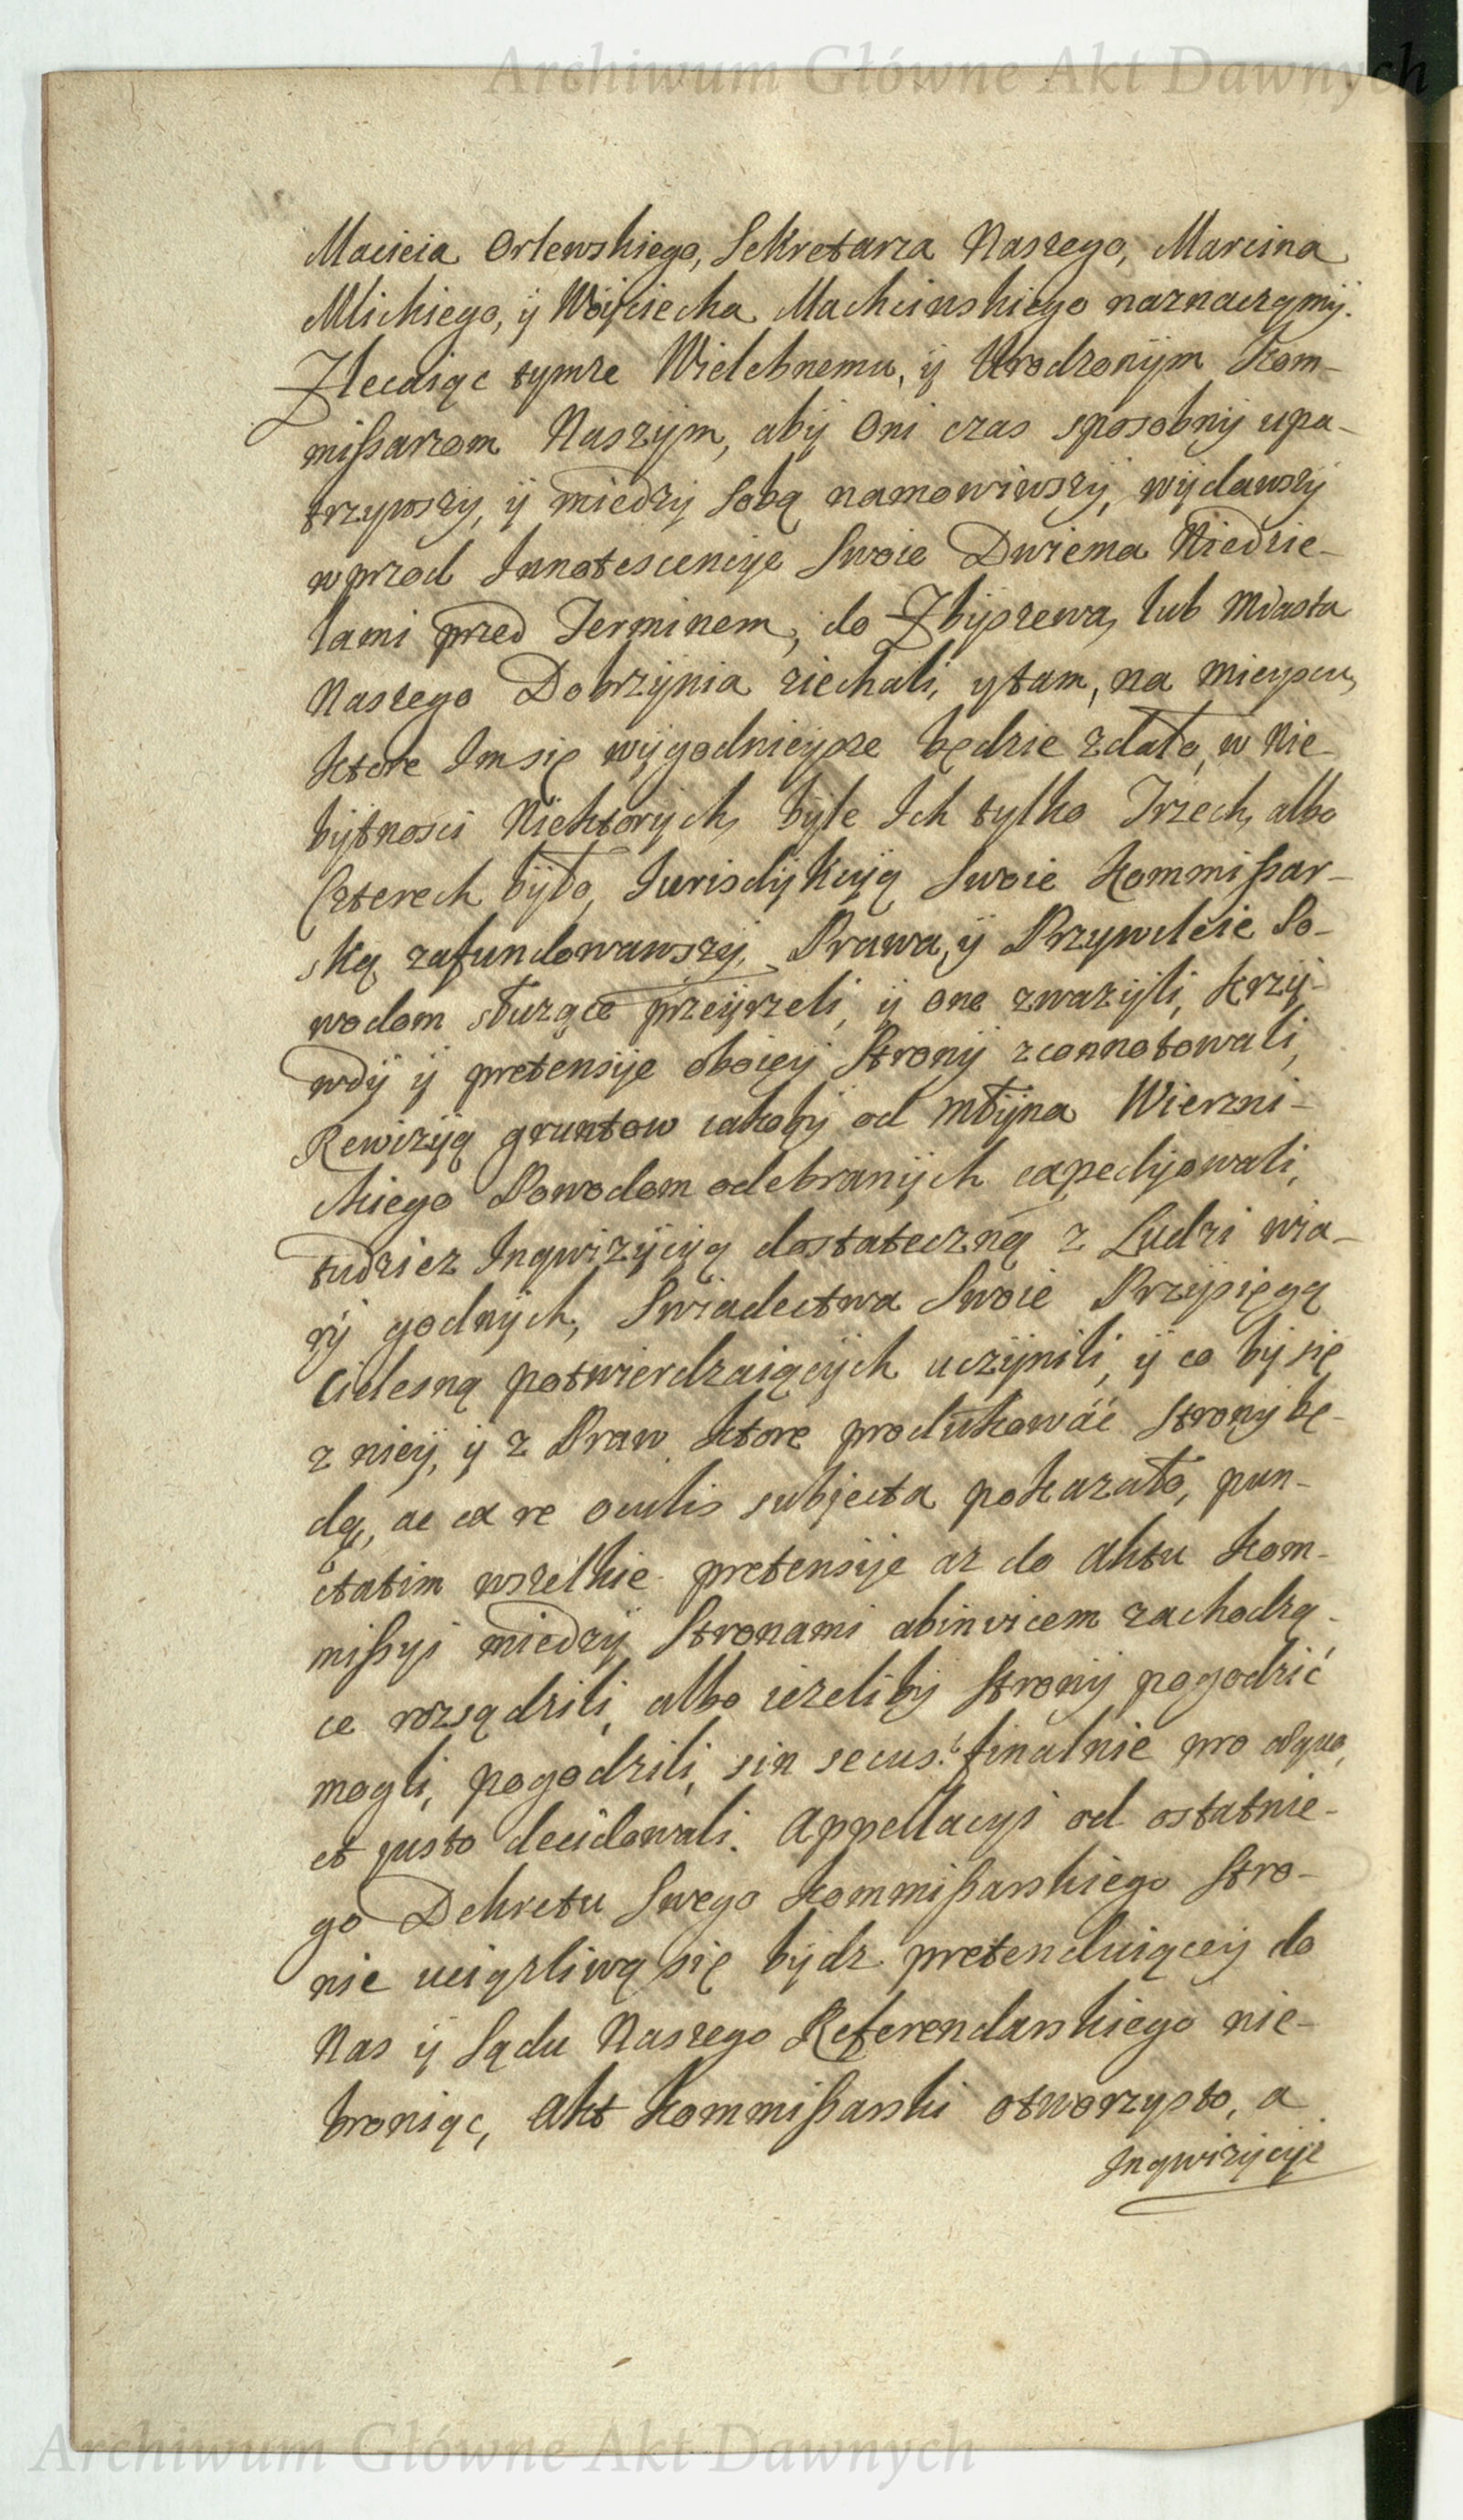 Archiwum Główne Akt Dawnych
Macieia Orlewskiego, Sekretarza Naszego, Marcina
Mlickiego, ÿ Woÿciecha Machcinskiego naznaczÿmÿ.
Zlecaiąc tymze Wielebnemu, ÿ Urodzonÿm Kom-
mißarzom Naszÿm, abÿ Oni czas sposobnÿ upa-
trzywszÿ, ÿ miedzÿ Sobą namowiwszÿ, wÿdawszÿ
wprzod Innotescencye Swoie Dwiema Niedzie-
lami przed Terminem, do Zbÿszewa, lub Miasta
Naszego Dobrzÿnia ziechali, y tam, na mieyscu,
ktore Im się wÿgodnieysze będzie zdało, w Nie-
bÿtnosci Niektorÿch, bÿle Ich tylko Trzech, albo
Czterech bÿło, Iurisdÿkcÿą Swoie Kommißar-
ską zafundowawszÿ, Prawa, ÿ Przywileie Po-
wodom służące przeÿrzeli, ÿ one zwazÿli, krzÿ-
wdÿ ÿ pretensÿe oboieÿ Stronÿ zconnotowali,
Rewizÿą gruntow iakobÿ od młÿna Wierzni-
ckiego Powodom odebranÿch expedÿowali,
tudziez Inqwizÿcÿą dostateczną z Ludzi wia-
rÿ godnÿch, Swiadectwa Swoie Przÿsięgą
Cielesną potwierdzaiącÿch uczÿnili, ÿ co bÿ się
z nieÿ, ÿ z Praw ktore produkowáć Stronÿ bę-
dą, ac ex re oculis subjecta pokazało, pun-
ctatim wszelkie pretensÿe az do Aktu Kom-
mißyi miedzÿ Stronami abinvicem zachodzą-
ce rozsądzili, albo iezelibÿ Stronÿ pogodzić
mogli, pogodzili, sin secus finalnie pro æquo,
et justo decidowali. Appellacyi od ostatnie-
go Dekretu Swego Kommißarskiego Stro-
nie uciązliwą się bÿdz pretenduiąceÿ do
Nas ÿ Sądu Naszego Referendarskiego nie-
broniąc, Akt Kommißarski otworzysto, a
Inqwizÿcÿe
Archiwum Główne Akt Dawnych